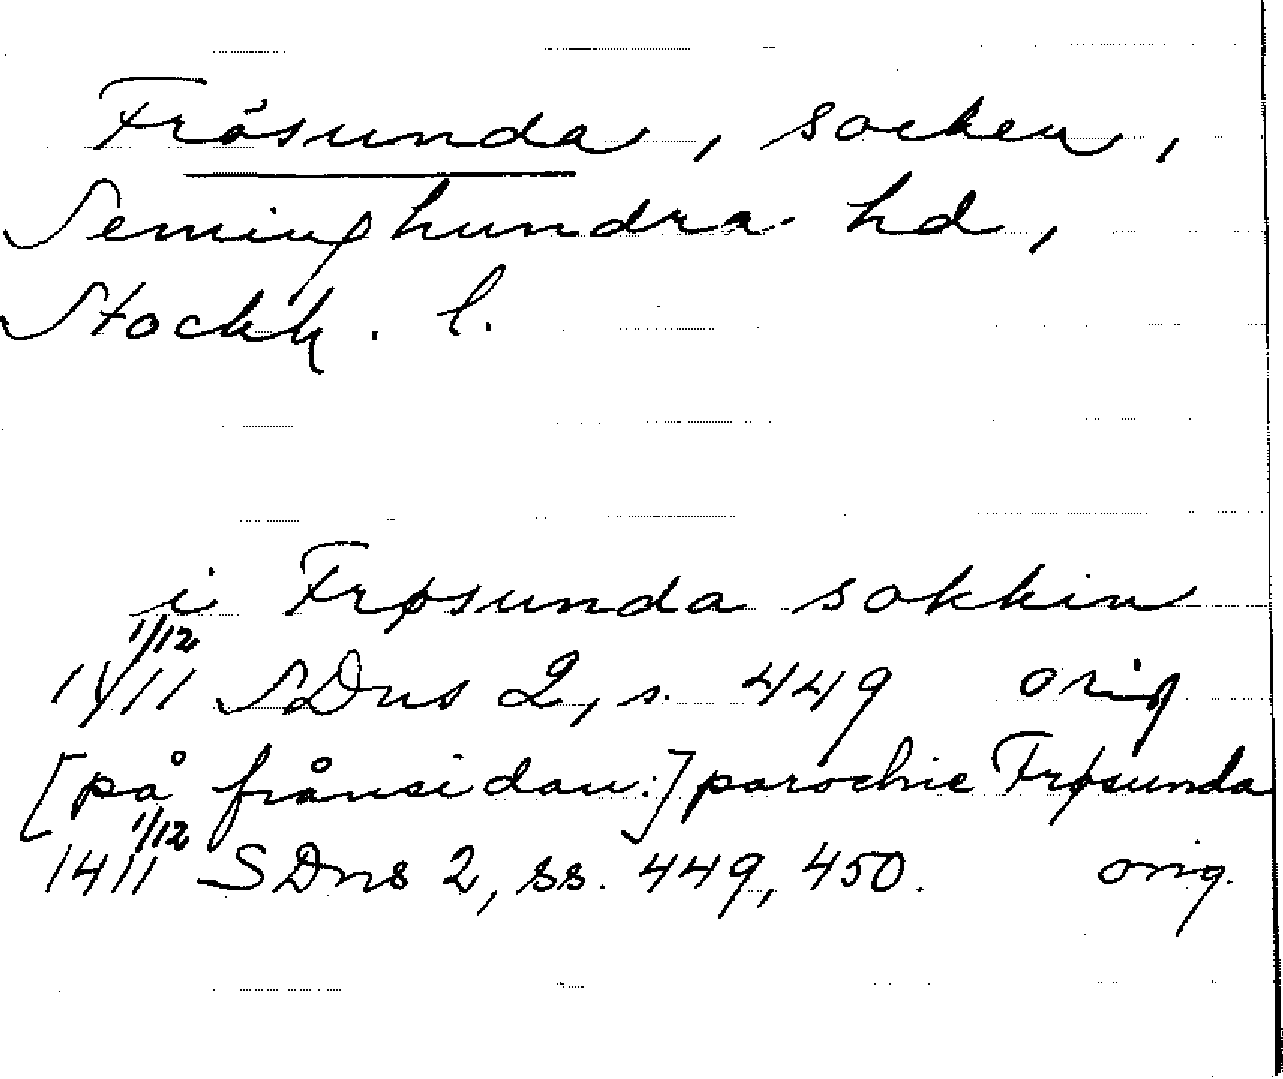 Frösunda, socken,
Seminghundra hd,
Stockh. l.
i Frøsunda sokkin
1/12
1411 SDns 2, s. 449 orig
[på frånsidan:] parochie Frøsunda
1/12
1411 SDns 2, ss. 449, 450. orig.